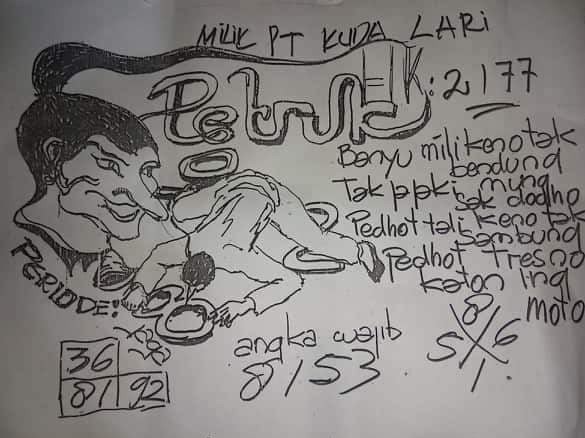 MILIK PT KUDA LARI
Petruk
EIK: 2177
Banyu mili keno tak
bendung
Tak ppki mung
sak dadine
Pedhot tali keno tak
sambung
Pedhot tresno
katon ing
moto
PERIODE!
36
81 92
angka wajib
8153
8
5 6
1.